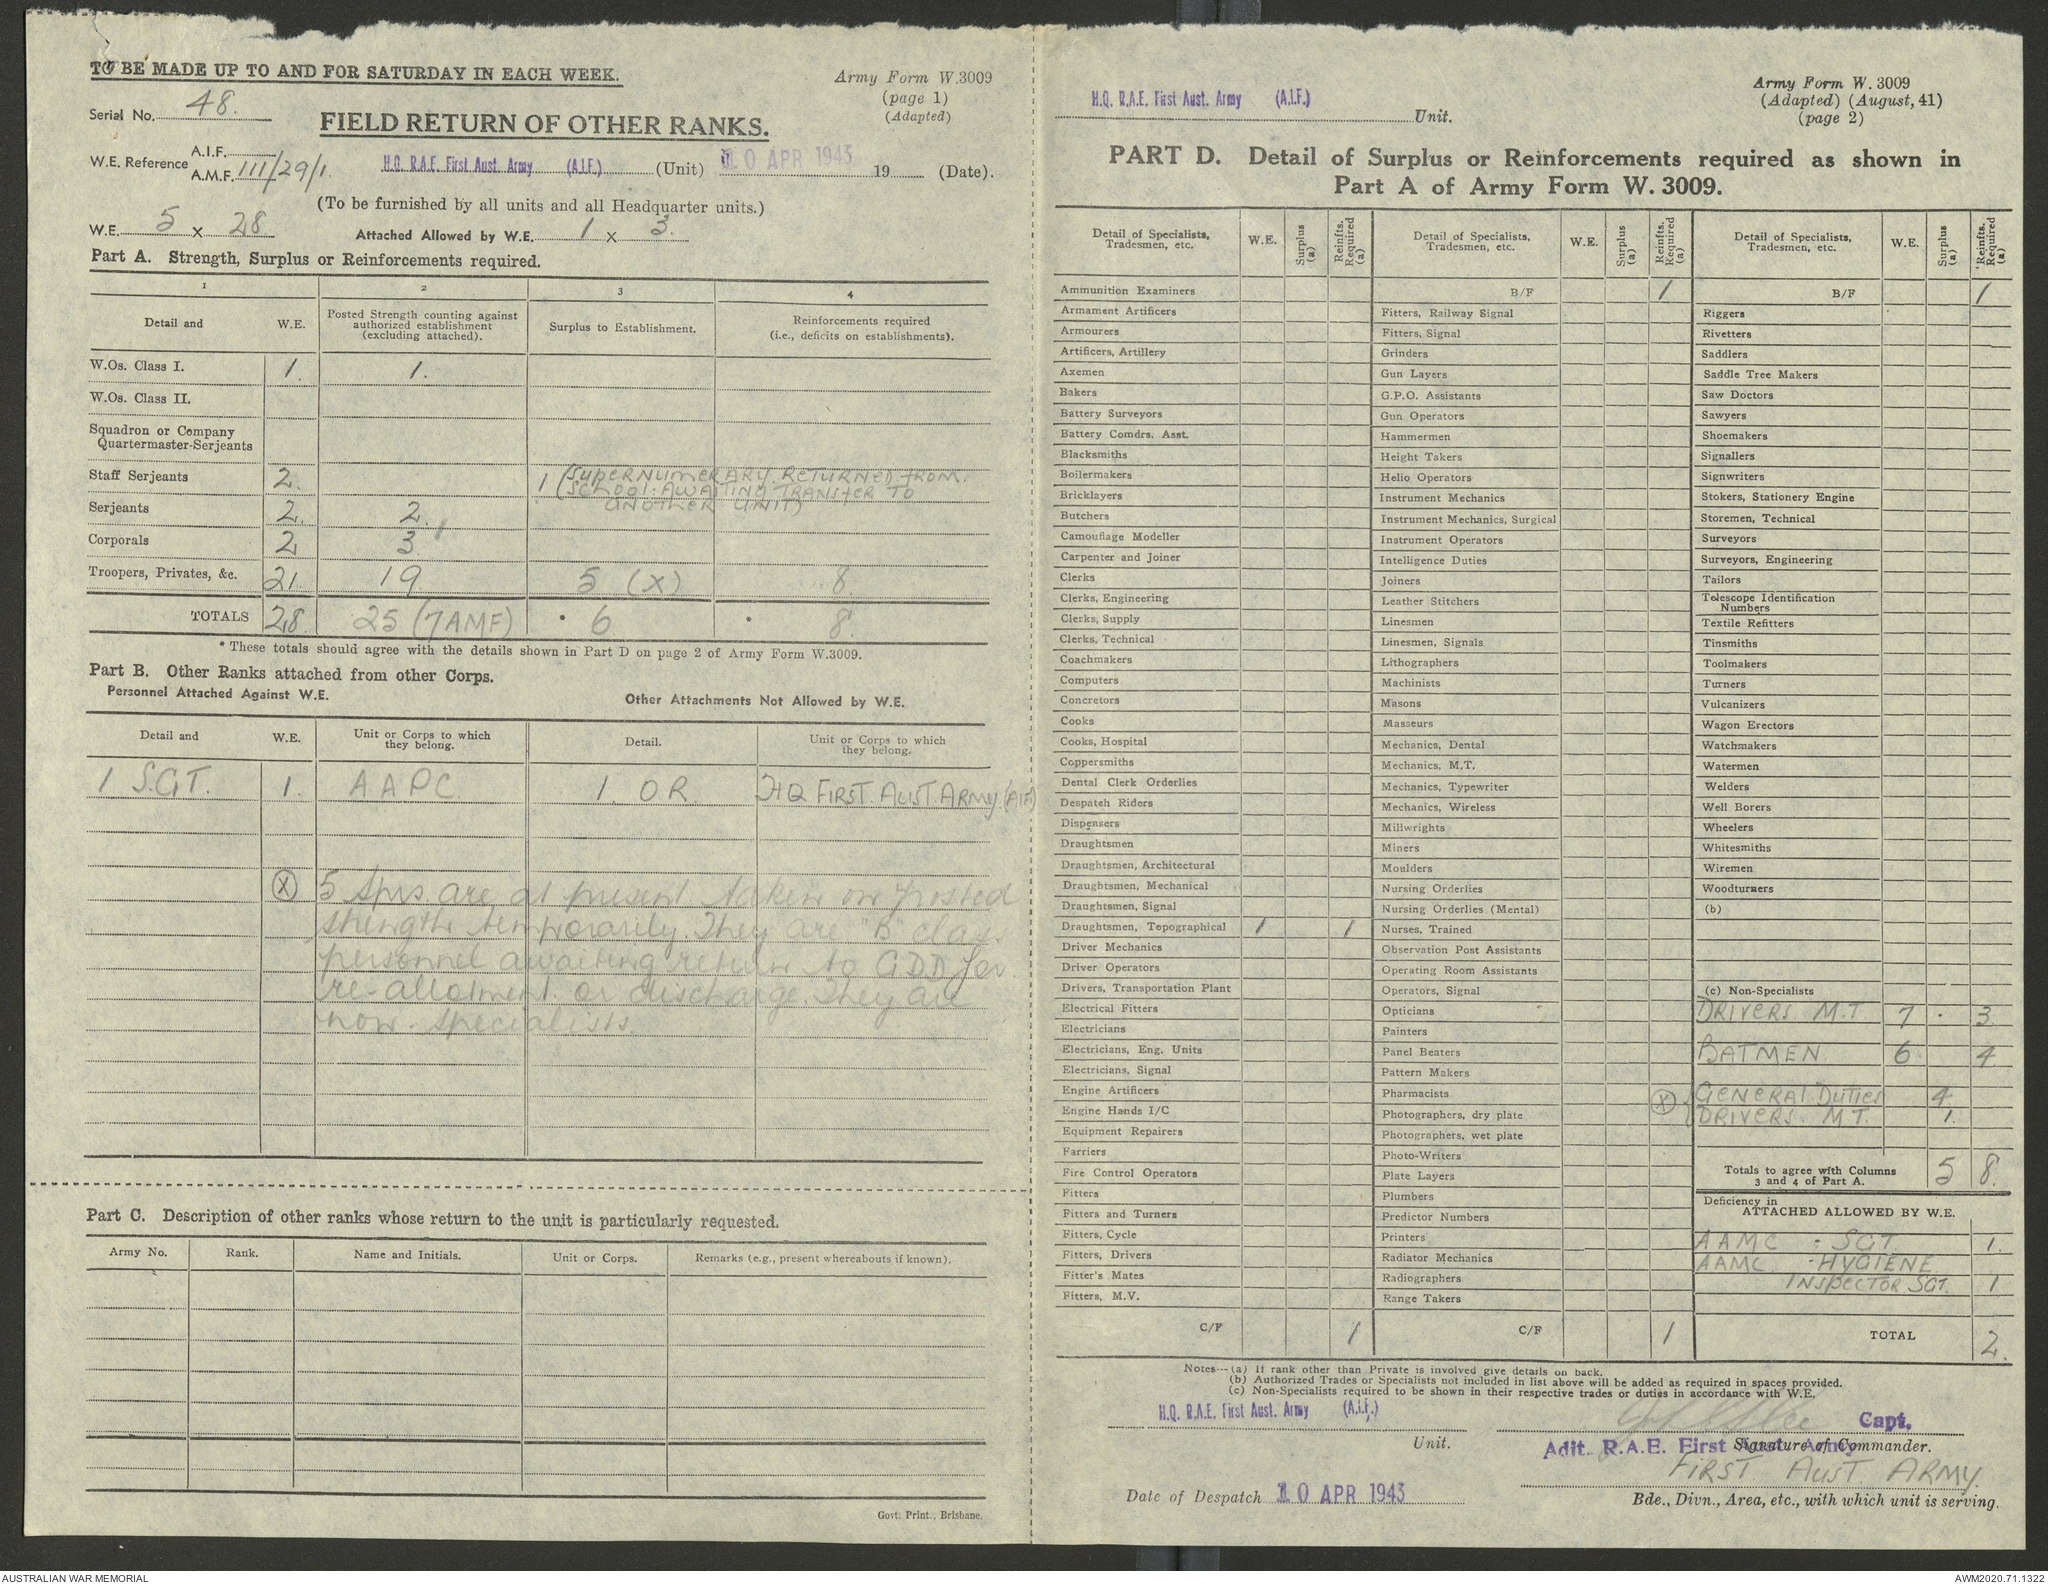 TO BE MADE UP TO AND FOR SATURDAY IN EACH WEEK.
Army Form W.3009
(page 1)
(Adapted)
Serial No. 48.
FIELD RETURN OF OTHER RANKS.
W.E. Reference A.I.F.
A.M.F. 111/29/1.
H.Q. R.A.E. First Aust. Army (A.I.F.) (Unit) 10 APR 1943 19 (Date).
(To be furnished by all units and all Headquarter units.)
W.E. 5 x 28 Attached Allowed by W.E. 1 x 3.
Part A. Strength, Surplus or Reinforcements required.
1 2 3 4
Detail and W.E. Posted Strength counting against authorized establishment (excluding attached). Surplus to Establishment. Reinforcements required (i.e., deficits on establishments).
W.Os. Class I. 1. 1.
W.Os. Class II.
Squadron or Company
Quartermaster-Serjeants
Staff Serjeants 2. 1 (SUPERNUMERARY. RETURNED FROM.
SCHOOL. AWAITING TRANSFER TO
ANOTHER UNIT)
Serjeants 2. 2.
Corporals 2 3
Troopers, Privates, &c. 21. 19 5 (X) 8.
TOTALS 28 25 (7 AMF) * 6 * 8.
* These totals should agree with the details shown in Part D on page 2 of Army Form W.3009.
Part B. Other Ranks attached from other Corps.
Personnel Attached Against W.E. Other Attachments Not Allowed by W.E.
Detail and W.E. Unit or Corps to which they belong. Detail. Unit or Corps to which they belong.
1 SGT. 1. AAPC 1. OR. HQ FIRST. AUST. ARMY. (AIF)
(X) 5 Sprs are at present taken on posted
strength temporarily. They are "B" class
personnel awaiting return to GDD for
re-allotment or discharge. They are
non-specialists.
Part C. Description of other ranks whose return to the unit is particularly requested.
Army No. Rank. Name and Initials. Unit or Corps. Remarks (e.g., present whereabouts if known).
Govt. Print., Brisbane.
H.Q. R.A.E. First Aust. Army (A.I.F.) Unit.
Army Form W. 3009
(Adapted) (August, 41)
(page 2)
PART D. Detail of Surplus or Reinforcements required as shown in
Part A of Army Form W. 3009.
Detail of Specialists, Tradesmen, etc. W.E. Surplus (a) Reinfts. Required (a)
Ammunition Examiners
Armament Artificers
Armourers
Artificers, Artillery
Axemen
Bakers
Battery Surveyors
Battery Comdrs. Asst.
Blacksmiths
Boilermakers
Bricklayers
Butchers
Camouflage Modeller
Carpenter and Joiner
Clerks
Clerks, Engineering
Clerks, Supply
Clerks, Technical
Coachmakers
Computers
Concretors
Cooks
Cooks, Hospital
Coppersmiths
Dental Clerk Orderlies
Despatch Riders
Dispensers
Draughtsmen
Draughtsmen, Architectural
Draughtsmen, Mechanical
Draughtsmen, Signal
Draughtsmen, Topographical 1 1
Driver Mechanics
Driver Operators
Drivers, Transportation Plant
Electrical Fitters
Electricians
Electricians, Eng. Units
Electricians, Signal
Engine Artificers
Engine Hands I/C
Equipment Repairers
Farriers
Fire Control Operators
Fitters
Fitters and Turners
Fitters, Cycle
Fitters, Drivers
Fitter's Mates
Fitters, M.V.
C/F 1
Detail of Specialists, Tradesmen, etc. W.E. Surplus (a) Reinfts. Required (a)
B/F 1
Fitters, Railway Signal
Fitters, Signal
Grinders
Gun Layers
G.P.O. Assistants
Gun Operators
Hammermen
Height Takers
Helio Operators
Instrument Mechanics
Instrument Mechanics, Surgical
Instrument Operators
Intelligence Duties
Joiners
Leather Stitchers
Linesmen
Linesmen, Signals
Lithographers
Machinists
Masons
Masseurs
Mechanics, Dental
Mechanics, M.T.
Mechanics, Typewriter
Mechanics, Wireless
Millwrights
Miners
Moulders
Nursing Orderlies
Nursing Orderlies (Mental)
Nurses, Trained
Observation Post Assistants
Operating Room Assistants
Operators, Signal
Opticians
Painters
Panel Beaters
Pattern Makers
Pharmacists
Photographers, dry plate
Photographers, wet plate
Photo-Writers
Plate Layers
Plumbers
Predictor Numbers
Printers
Radiator Mechanics
Radiographers
Range Takers
C/F 1
Detail of Specialists, Tradesmen, etc. W.E. Surplus (a) Reinfts. Required (a)
B/F 1
Riggers
Rivetters
Saddlers
Saddle Tree Makers
Saw Doctors
Sawyers
Shoemakers
Signallers
Signwriters
Stokers, Stationery Engine
Storemen, Technical
Surveyors
Surveyors, Engineering
Tailors
Telescope Identification
Numbers
Textile Refitters
Tinsmiths
Toolmakers
Turners
Vulcanizers
Wagon Erectors
Watchmakers
Watermen
Welders
Well Borers
Wheelers
Whitesmiths
Wiremen
Woodturners
(b)
(c) Non-Specialists
DRIVERS. M.T 7 . 3
BATMEN 6 4
(X) GENERAL DUTIES 4
DRIVERS. M.T. 1.
Totals to agree with Columns
3 and 4 of Part A. 5 8.
Deficiency in
ATTACHED ALLOWED BY W.E.
AAMC - SGT. 1.
AAMC. - HYGIENE
INSPECTOR SGT. 1
TOTAL 2.
Notes---(a) If rank other than Private is involved give details on back.
(b) Authorized Trades or Specialists not included in list above will be added as required in spaces provided.
(c) Non-Specialists required to be shown in their respective trades or duties in accordance with W.E.
H.Q. R.A.E. First Aust. Army (A.I.F.)
Unit.
Capt.
Adjt. R.A.E. First Aust. Army
Signature of Commander.
FIRST AUST. ARMY.
Date of Despatch 10 APR 1943
Bde., Divn., Area, etc., with which unit is serving.
AUSTRALIAN WAR MEMORIAL
AWM2020.71.1322